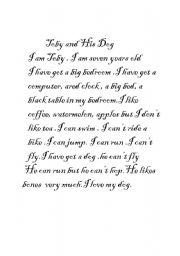 Toby and His Dog
I am Toby . I am seven years old
I have got a big bedroom .I have got a
computer, ared clock , a big bed, a
black table in my bedroom.I like
coffee, watermelon, apples but I don't
like tea .I can swim . I can't ride a
bike .I can jump. I can run .I can't
fly.I have got a dog .he can't fly
He can run but he can't hop. He likes
bones very much.I love my dog.